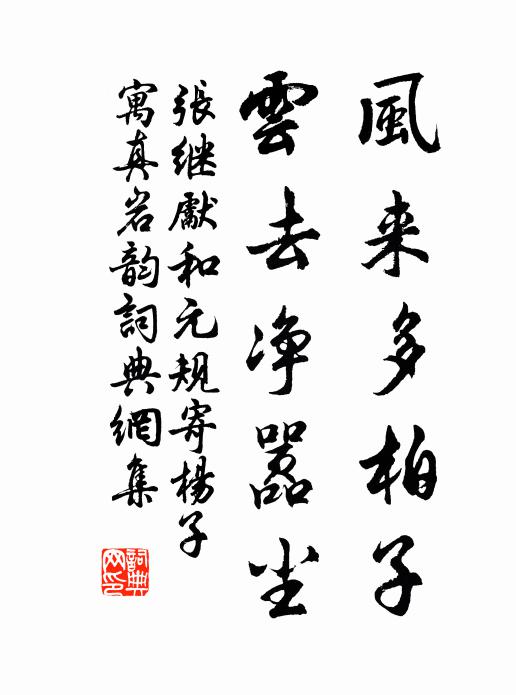 風来多柏子
雲去净嚣尘
張继獻和元规寄楊子
寓真岩韵詞典網集
詞典网印